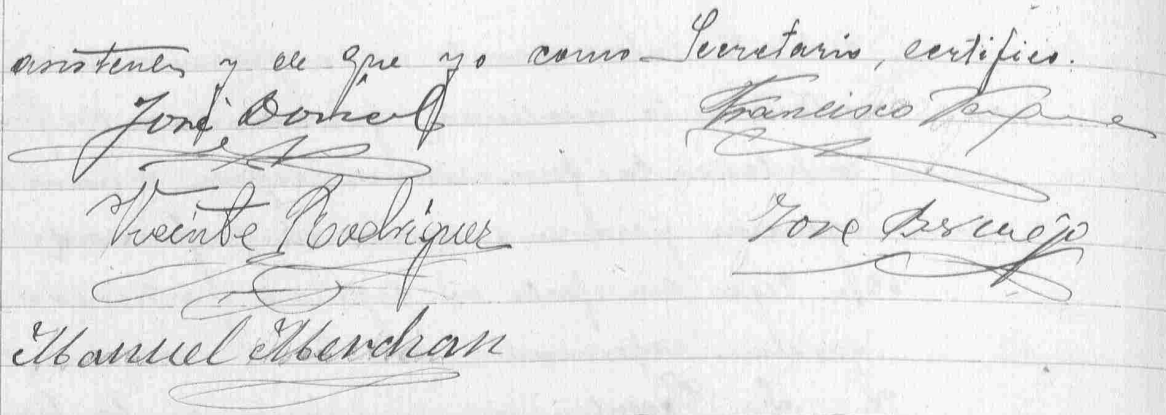 asistentes y de que yo como Secretario, certifico.
José Francisco
Vicente Rodriguez José Bermejo
Manuel Merchan